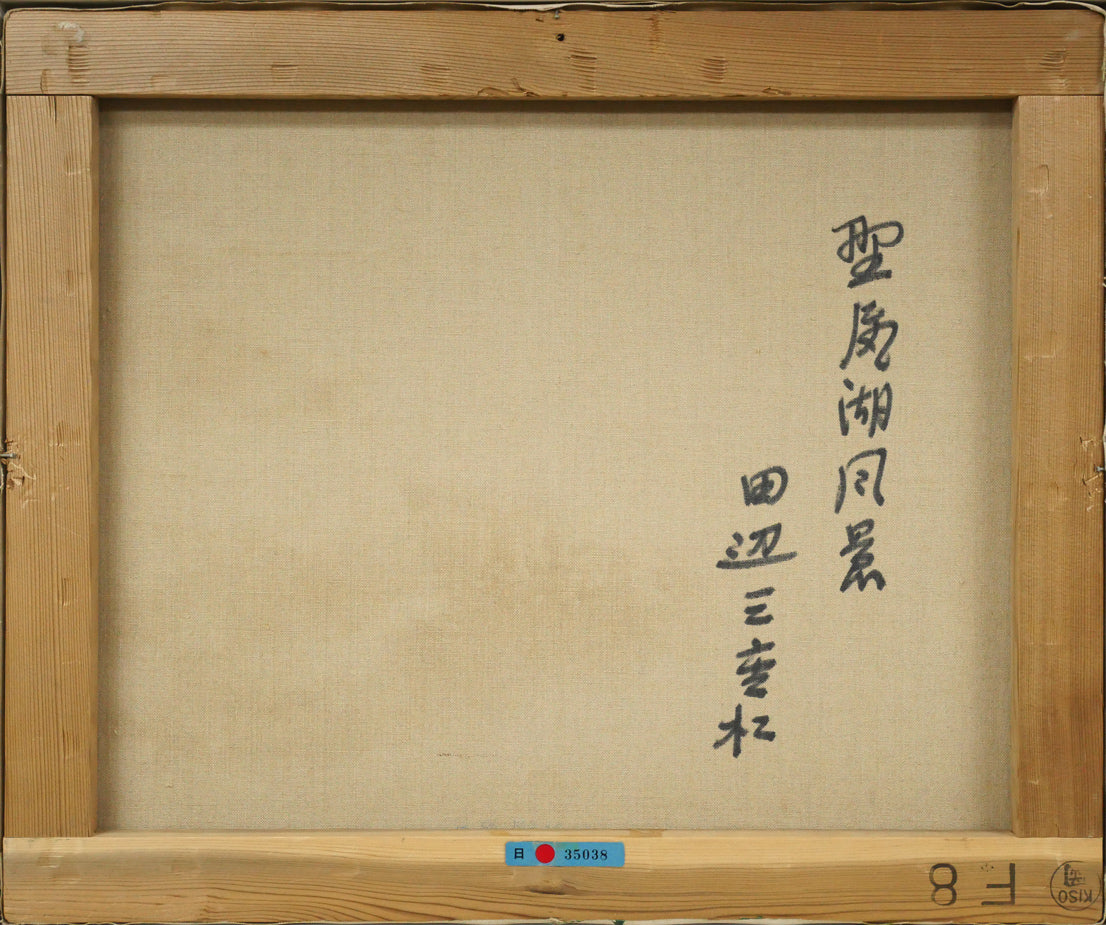 湖風景
田辺三重松
日 35038
F 8
KISO